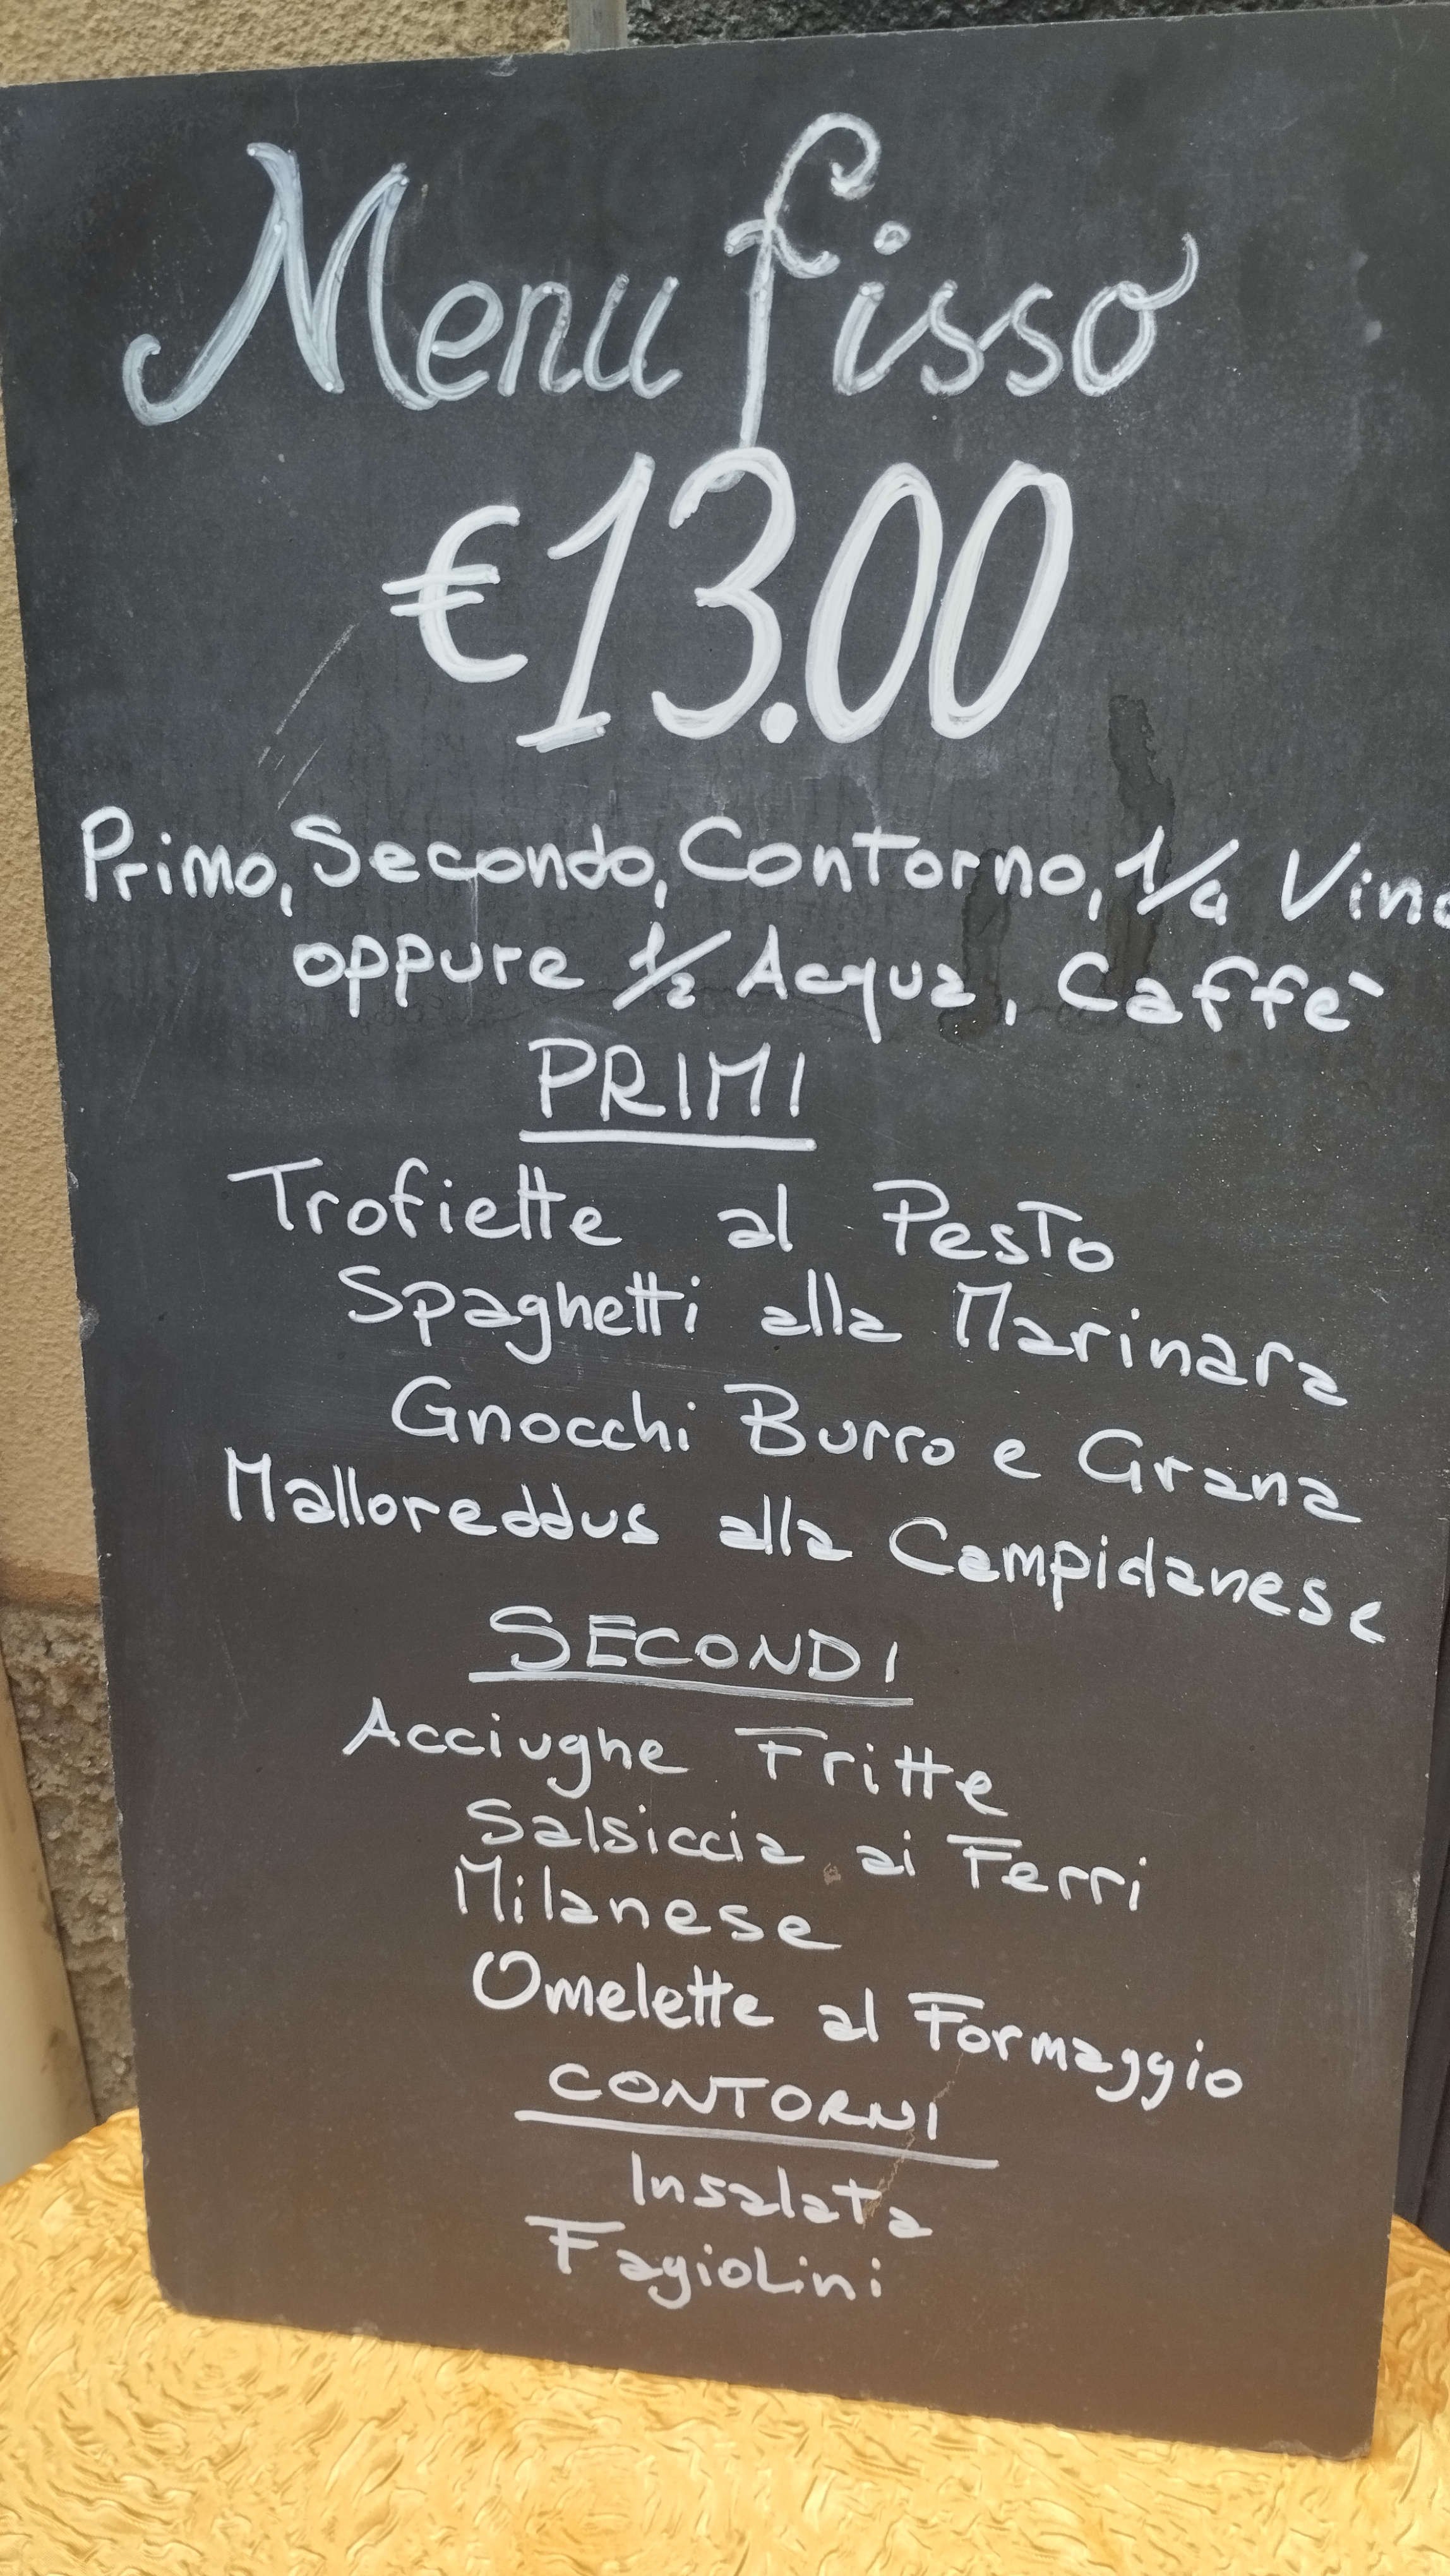 Menu fisso
€13.00
Primo, Secondo, Contorno, 1/4 Vino
oppure 1/2 Acqua, Caffè
PRIMI
Trofiette al Pesto
Spaghetti alla Marinara
Gnocchi Burro e Grana
Malloreddus alla Campidanese
SECONDI
Acciughe Fritte
Salsiccia ai Ferri
Milanese
Omelette al Formaggio
CONTORNI
Insalata
Fagiolini